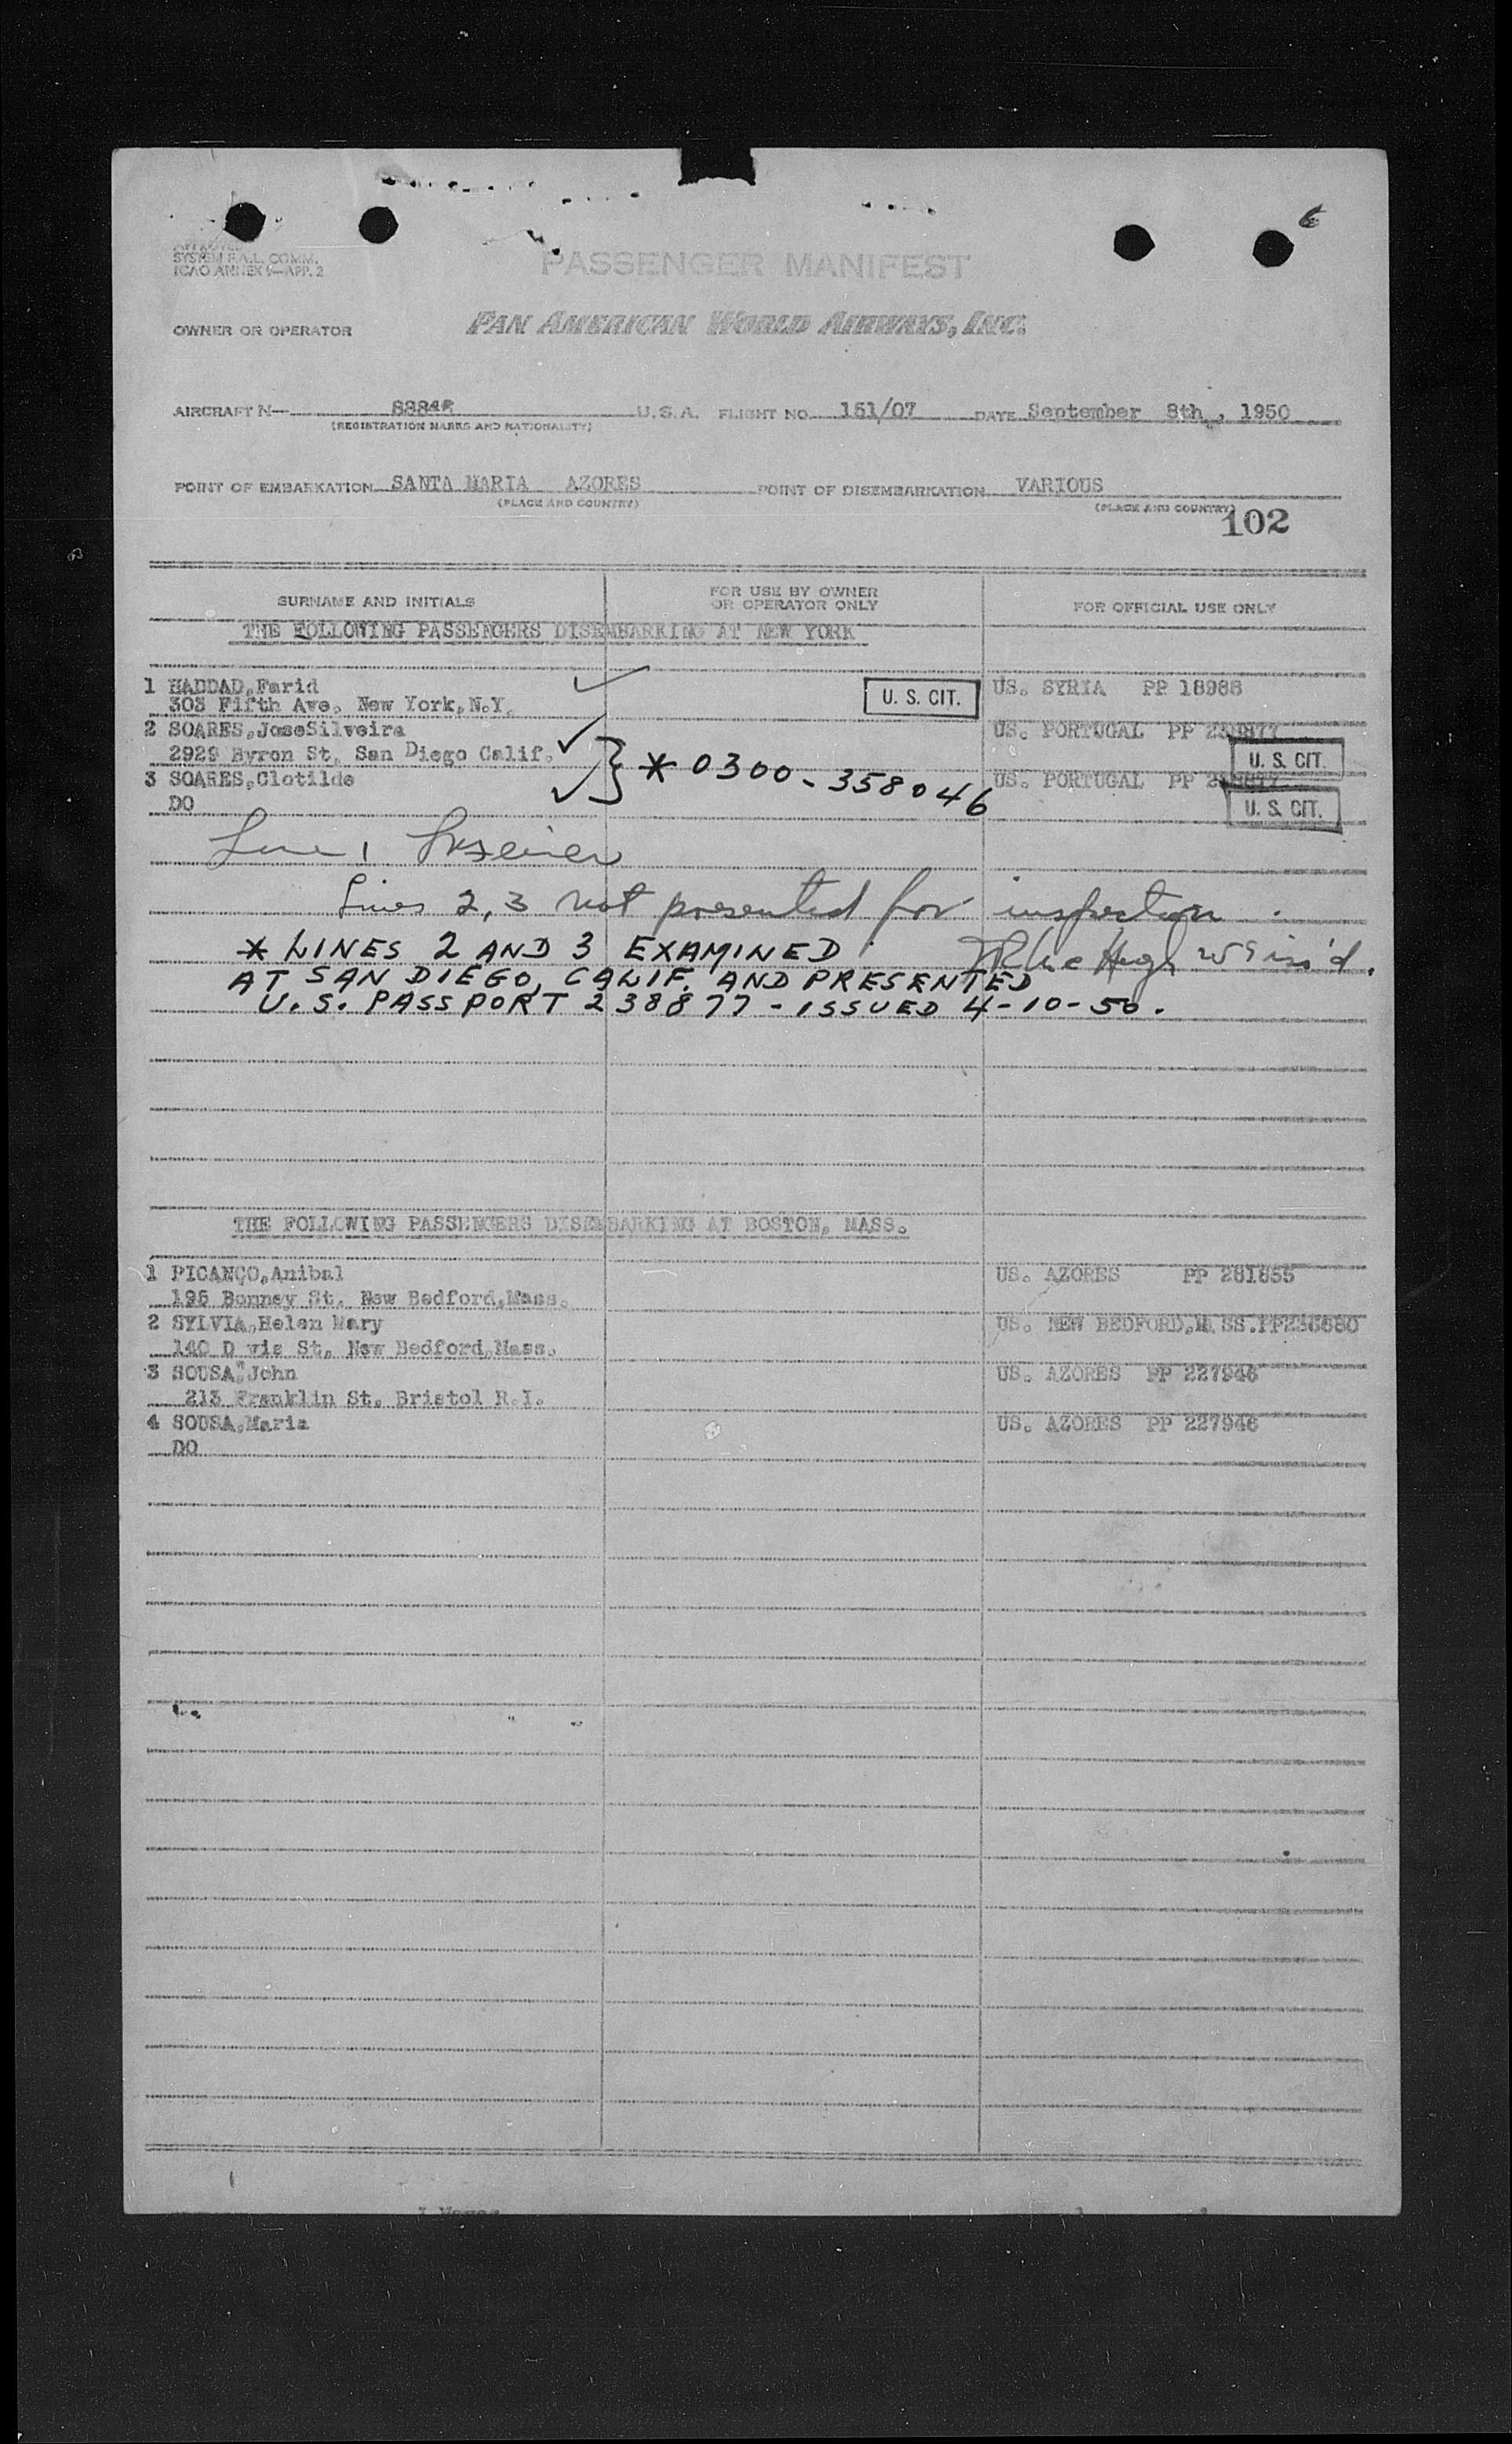 6
APPROVED
SYSTEM F.A.L. COMM.
ICAO ANNEX 9—APP. 2
PASSENGER MANIFEST
OWNER OR OPERATOR
PAN AMERICAN WORLD AIRWAYS, INC.
AIRCRAFT N— U.S.A. FLIGHT NO. 151/07 DATE September 8th, 1950
(REGISTRATION MARKS AND NATIONALITY)
POINT OF EMBARKATION SANTA MARIA AZORES POINT OF DISEMBARKATION VARIOUS
(PLACE AND COUNTRY) (PLACE AND COUNTRY)
102
SURNAME AND INITIALS FOR USE BY OWNER OR OPERATOR ONLY FOR OFFICIAL USE ONLY
THE FOLLOWING PASSENGERS DISEMBARKING AT NEW YORK
1 HADDAD,Farid U. S. CIT. US. SYRIA PP 18988
303 Fifth Ave. New York,N.Y.
2 SOARES,JoseSilveira US. PORTUGAL PP
2929 Byron St. San Diego Calif. U. S. CIT.
* 0300-358046
3 SOARES,Clotilde US. PORTUGAL PP
DO U. S. CIT.
Line 1
Lines 2, 3 not presented for inspection.
* LINES 2 AND 3 EXAMINED
AT SAN DIEGO, CALIF. AND PRESENTED
U.S. PASSPORT 238877 - ISSUED 4-10-50.
THE FOLLOWING PASSENGERS DISEMBARKING AT BOSTON, MASS.
1 PICANÇO,Anibal US. AZORES PP 281855
195 Bonney St. New Bedford,Mass.
2 SYLVIA,Helen Mary US. NEW BEDFORD,MA SS.
140 D vis St. New Bedford,Mass.
3 SOUSA,John US. AZORES PP 227946
213 Franklin St. Bristol R.I.
4 SOUSA,Maria US. AZORES PP 227946
DO